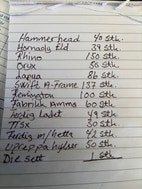 Hammerhead 40 Stk.
Hornady Eld 39 Stk.
Rhino 150 Stk.
Orix 50 Stk.
Lapua 86 Stk.
Swift A-Frame 137 Stk.
Remington 100 Stk.
Fabrikk Ammo 60 Stk.
Ladet 49 Stk.
TSX 30 Stk.
Ferdig m/hette 42 Stk.
hylser 50 Stk.
Die sett 1 Stk.